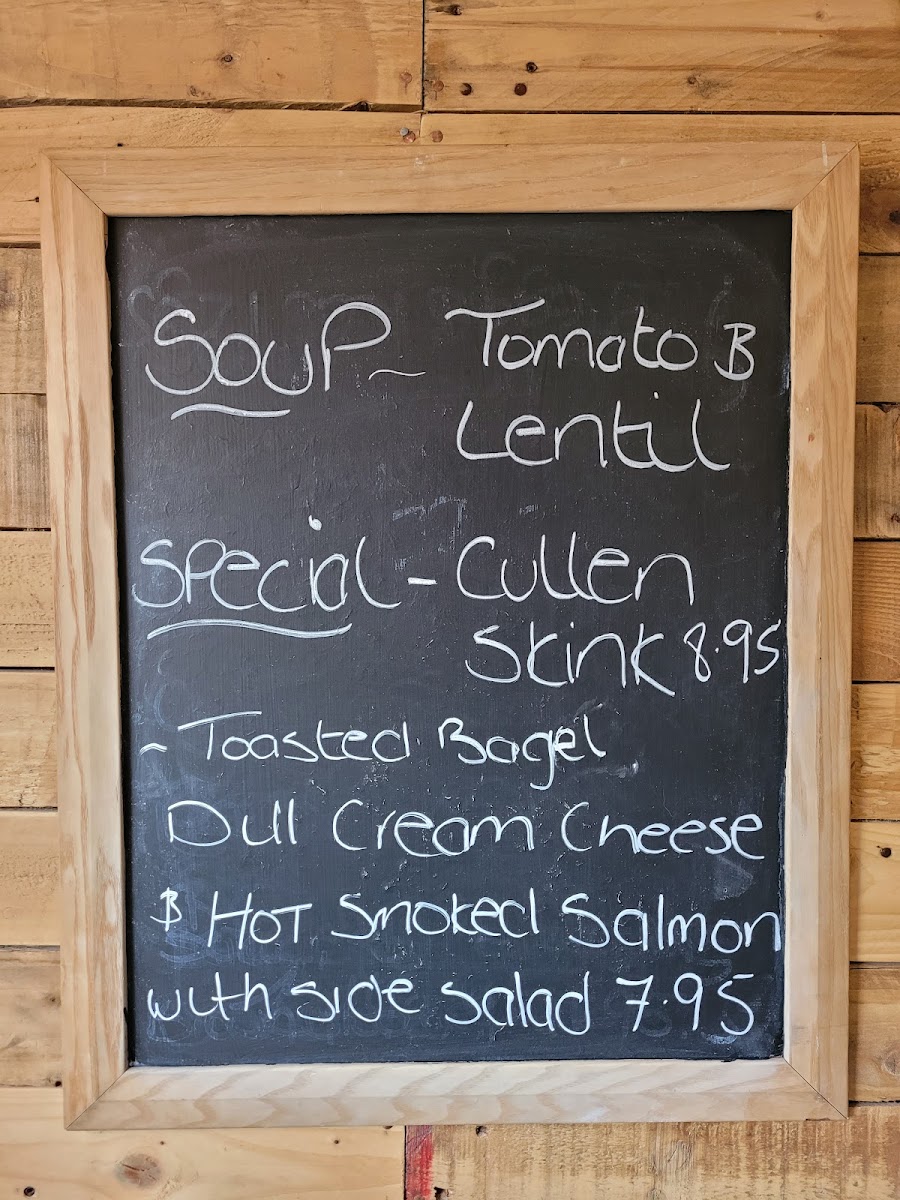 Soup ~ Tomato &
Lentil
Special - Cullen
Skink 8.95
~ Toasted Bagel
Dill Cream Cheese
& Hot Smoked Salmon
with side salad 7.95